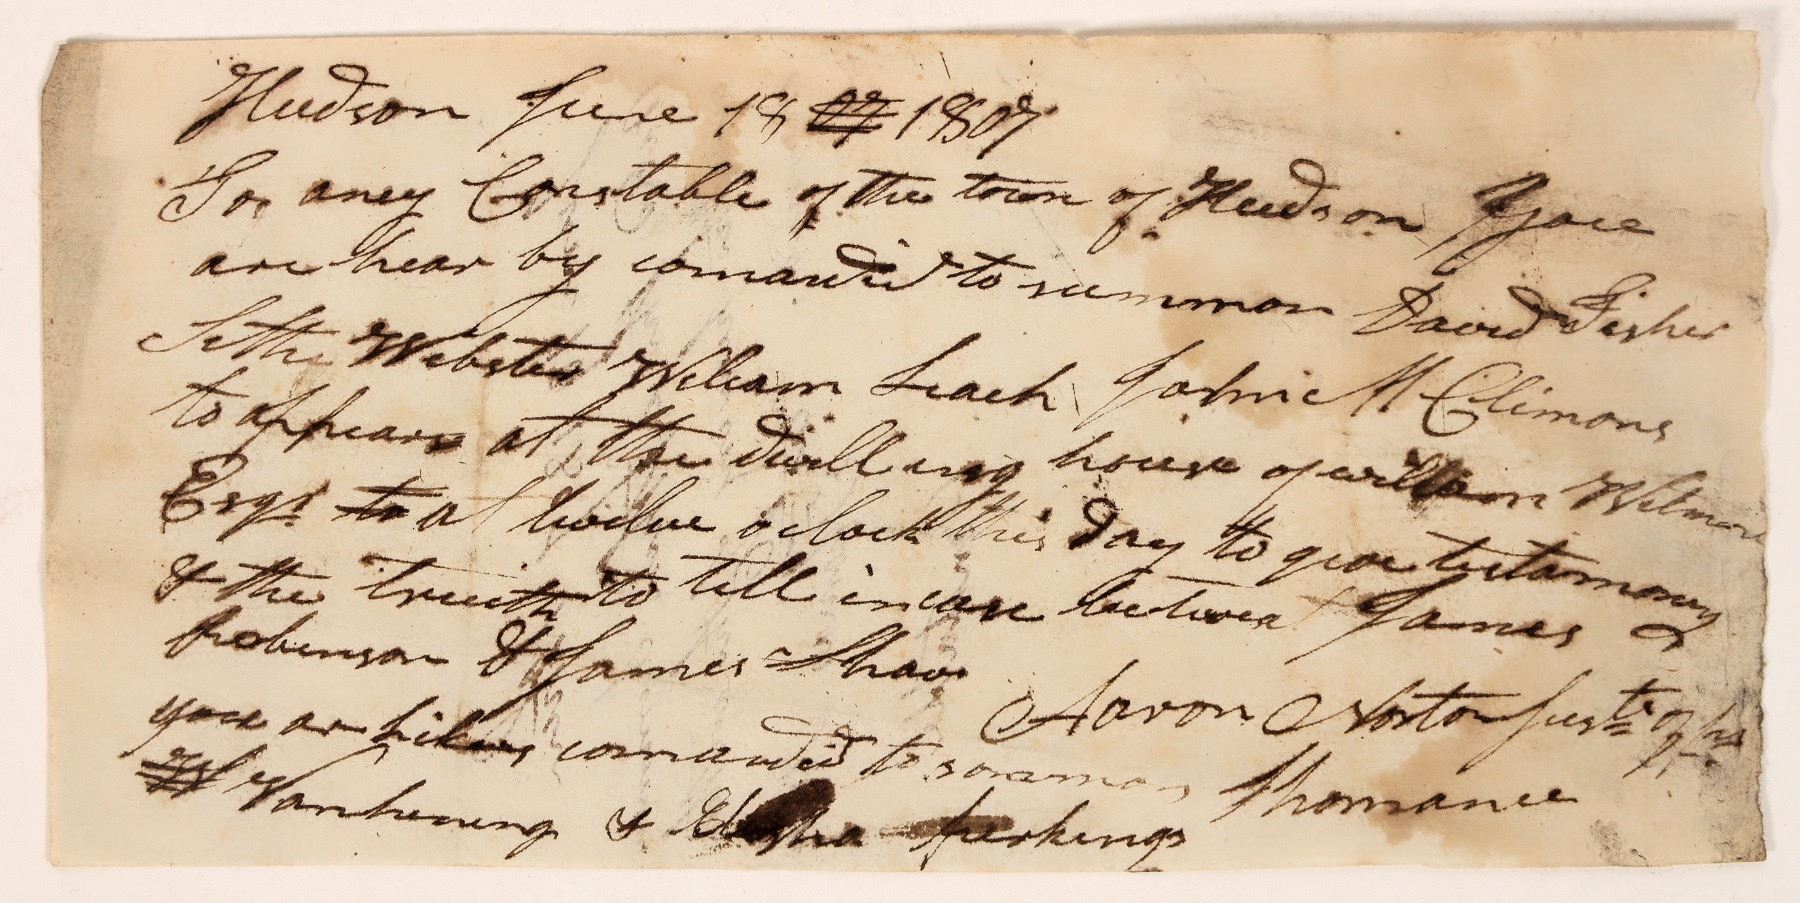 Hudson June 18 1807
To aney Constable of the town of Hudson You
are hear by comanded to summon David Fisher
Sethe Webster Wileam Leach John McClimons
to appear at the dwilling house of william Wilmon
Esqr at twelve oclock this Day to give testamoney
& the trueth to tell in case betwen James
Robinson & James Shaw
Aaron Norton Just of
you ar comanded to somman Thomanee
Vanhening & Elisha Perkings